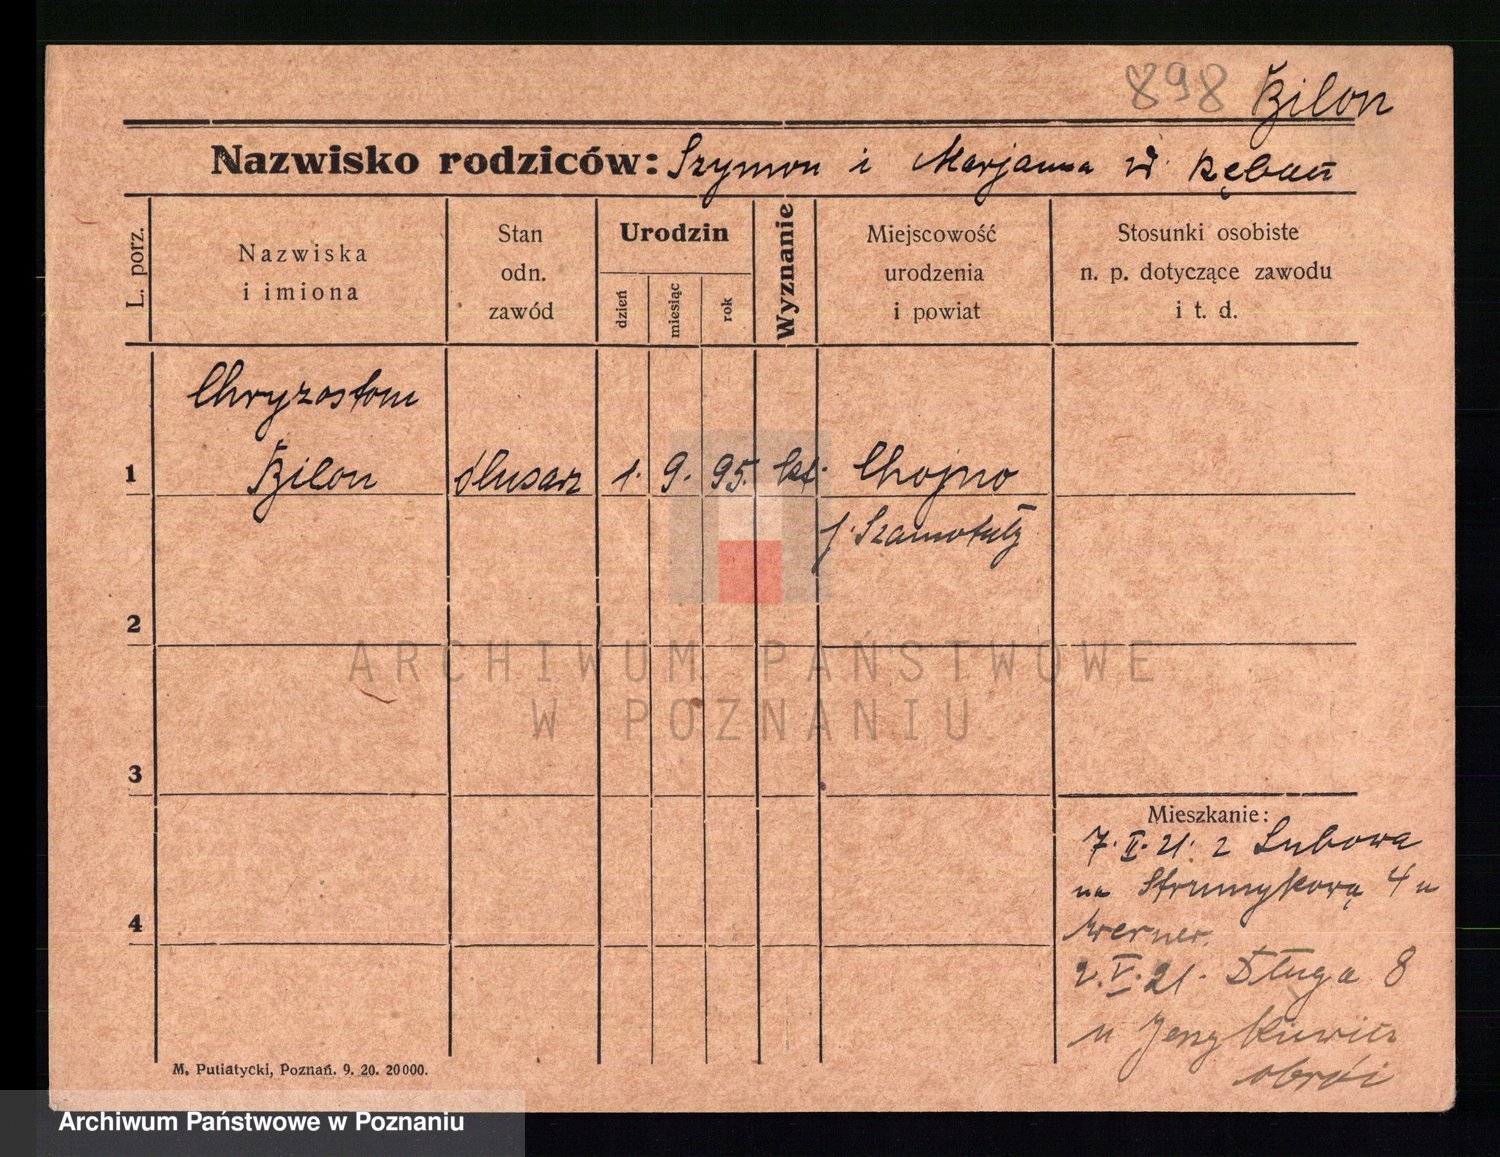 898 Żilon
Nazwisko rodziców: Szymon i Marjanna
L. porz.
Nazwiska
i imiona
Stan
odn.
zawód
Urodzin
dzień
miesiąc
rok
Wyznanie
Miejscowość
urodzenia
i powiat
Stosunki osobiste
n. p. dotyczące zawodu
i t. d.
Chryzostom
1 Żilon ślusarz 1. 9. 95. kt. Chojno
Szamotuły
2
3
4
Mieszkanie:
7. II. 21. z Lubowa
na Strumykową 4 u
Werner.
2. V. 21. Długa 8
u
M. Putiatycki, Poznań. 9. 20. 20000.
ARCHIWUM PAŃSTWOWE
W POZNANIU
Archiwum Państwowe w Poznaniu